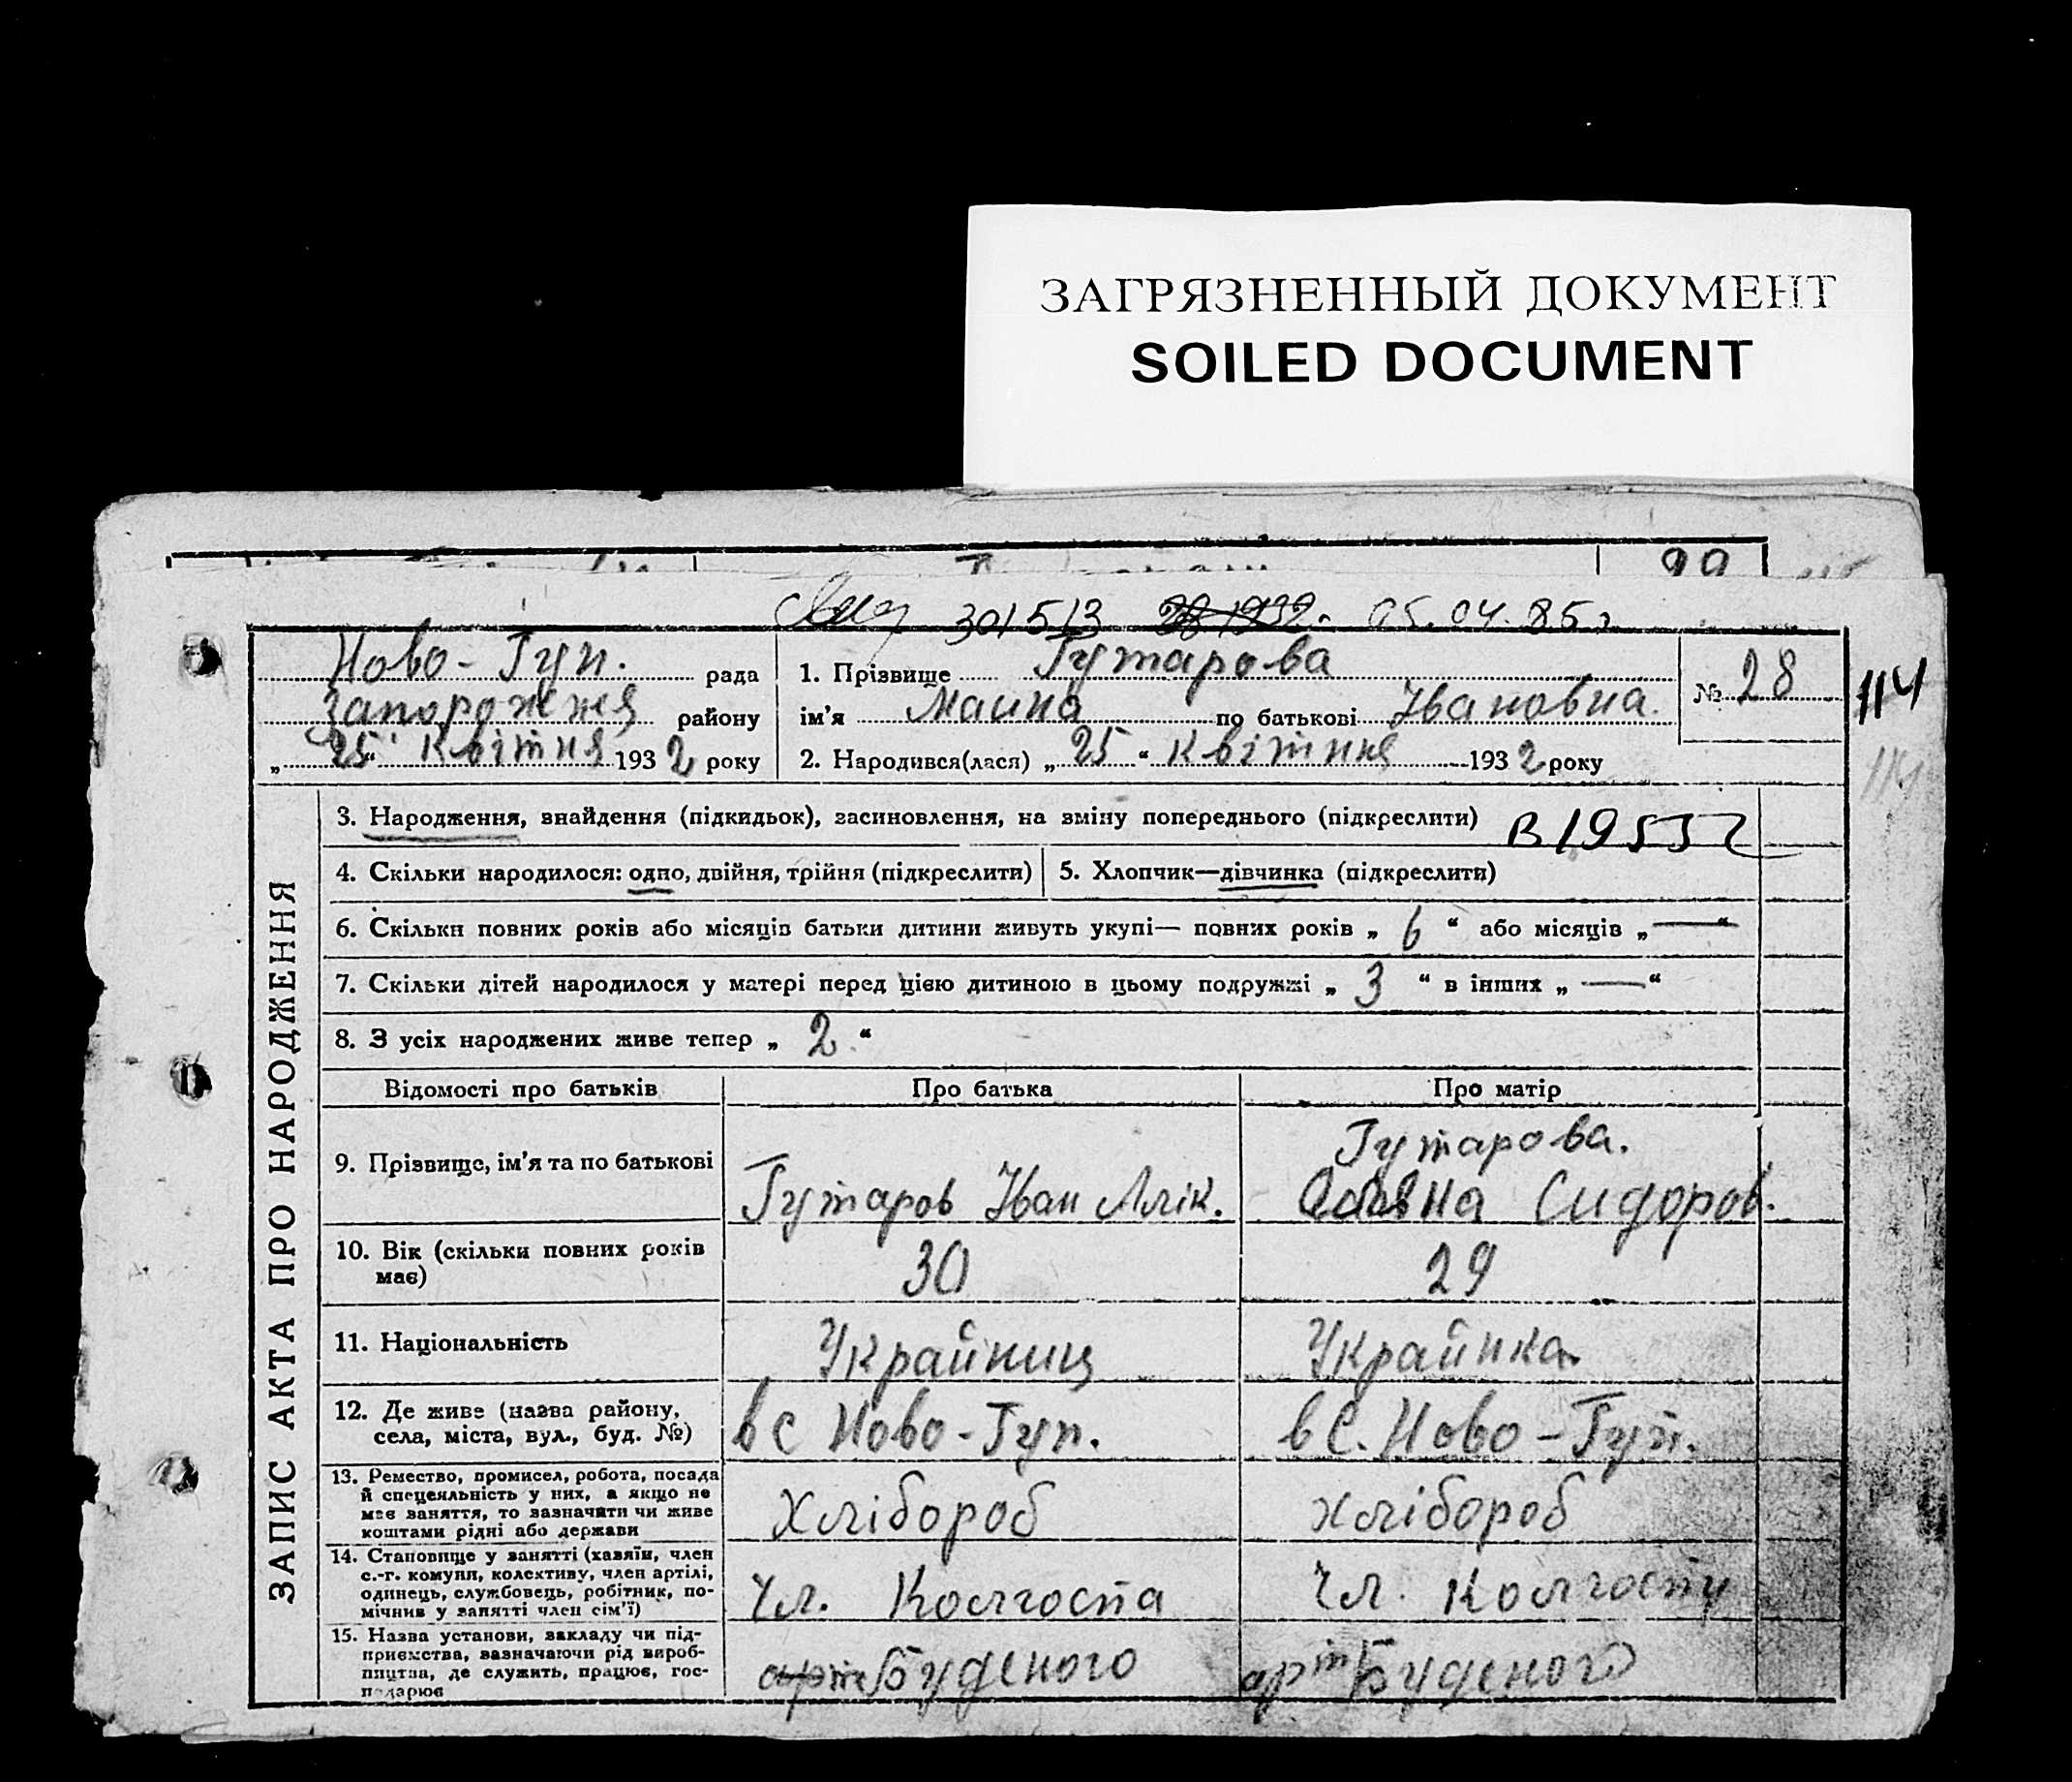 ЗАГРЯЗНЕННЫЙ ДОКУМЕНТ
SOILED DOCUMENT
301513 05.04.85г
Ново-Гуп. рада
Запорожжя району
„25“ квітня 1932 року
1. Прізвище Гутарова
ім'я по батькові Івановна.
2. Народився(лася) „25“ квітня 1932 року
№ 28
114
114
ЗАПИС АКТА ПРО НАРОДЖЕННЯ
3. Народження, знайдення (підкидьок), засиновлення, на зміну попереднього (підкреслити)
4. Скільки народилося: одно, двійня, трійня (підкреслити)
5. Хлопчик—дівчинка (підкреслити)
6. Скільки повних років або місяців батьки дитини живуть укупі— повних років „ 6 “ або місяців „—“
7. Скільки дітей народилося у матері перед цією дитиною в цьому подружжі „ 3 “ в інших „—“
8. З усіх народжених живе тепер „ 2 “
Відомості про батьків Про батька Про матір
9. Прізвище, ім'я та по батькові
Гутаров Іван
Гутарова.
Сидоров.
10. Вік (скільки повних років
має)
30
29
11. Національність
Украйниц
Украйнка
12. Де живе (назва району,
села, міста, вул., буд. №)
в с Ново-Гуп.
в С. Ново-Гуп.
13. Ремество, промисел, робота, посада
й спецеяльність у них, а якщо не
має заняття, то зазначити чи живе
коштами рідні або держави
Хлібороб
хлібороб
14. Становище у занятті (хазяїн, член
с.-г. комуни, колективу, член артілі,
одинець, службовець, робітник, по-
мічник у занятті член сім'ї)
Чл. Колгоспа
Чл. Колгоспу
15. Назва установи, закладу чи під-
приємства, зазначаючи рід вироб-
ництва, де служить, працює, гос-
подарює
Буденого
арт Буденого